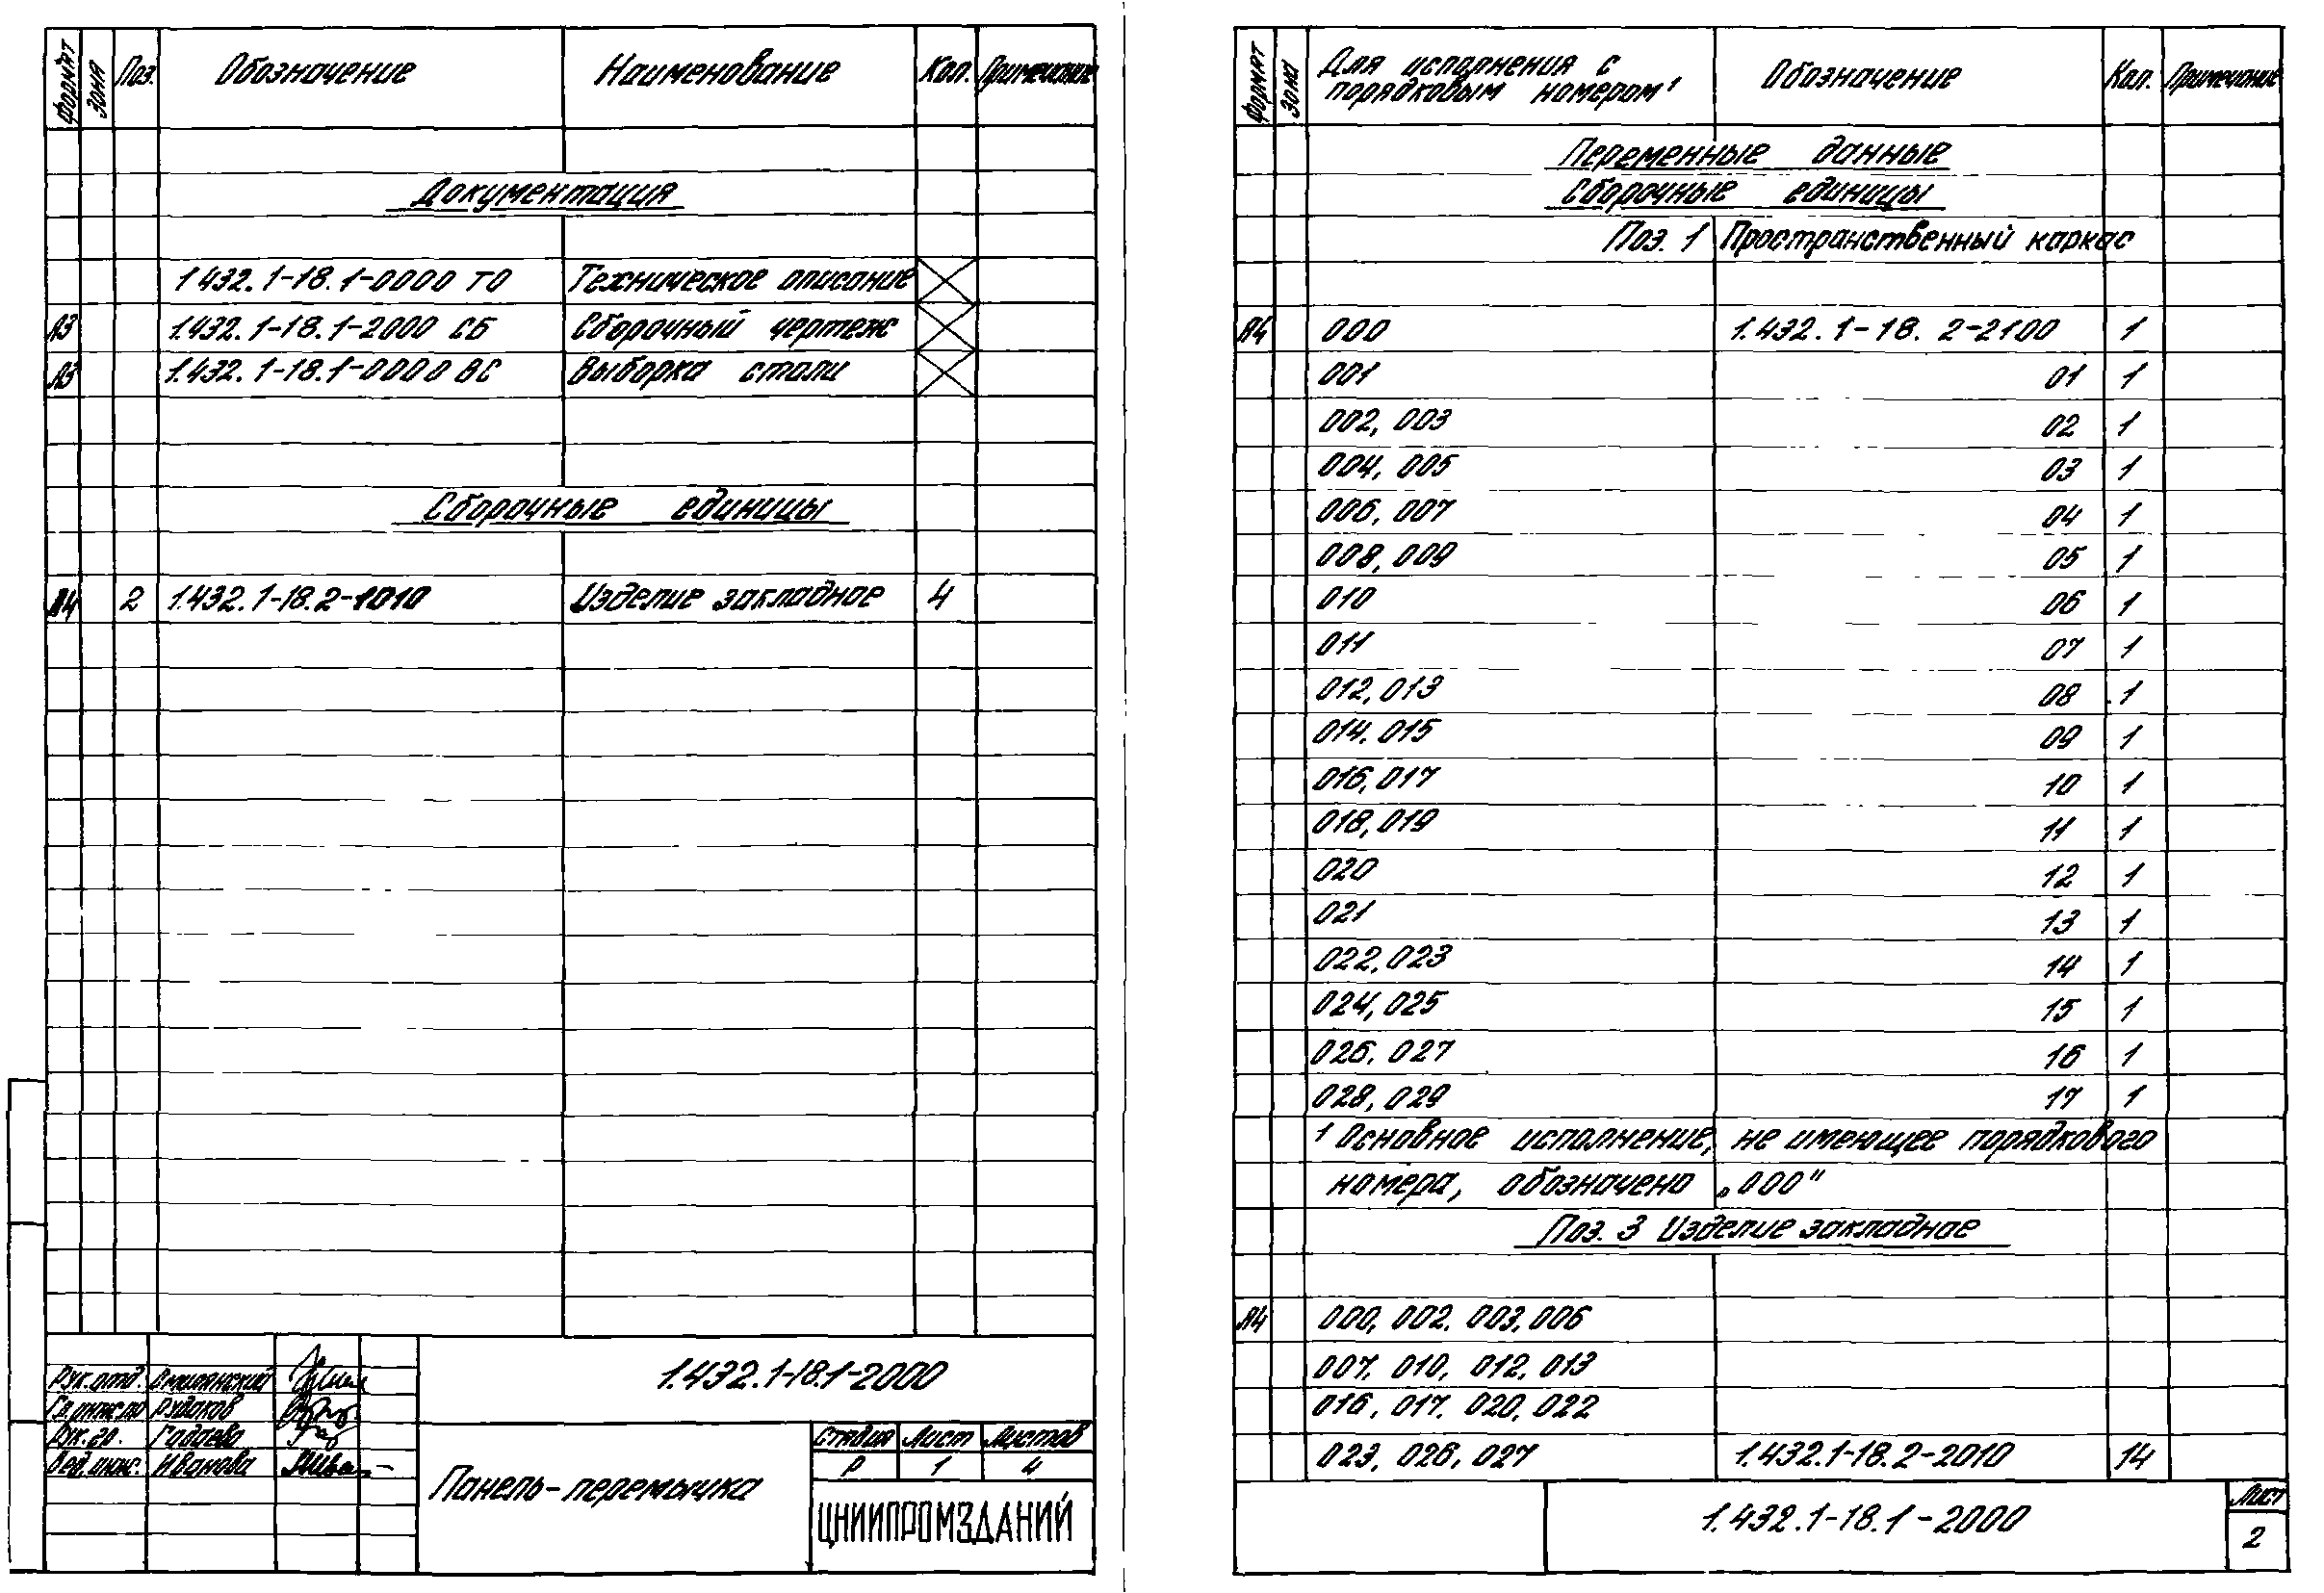 Формат Зона Поз. Обозначение Наименование Кол. Примечание
Документация
1.432.1-18.1-0000 ТО Техническое описание
А3 1.432.1-18.1-2000 СБ Сборочный чертеж
А3 1.432.1-18.1-0000 ВС Выборка стали
Сборочные единицы
А4 2 1.432.1-18.2-1010 Изделие закладное 4
1.432.1-18.1-2000
Рук.отд.
Гл.инж.пр Рудаков
Рук.гр. Гадаева
Вед.инж. Иванова
Панель-перемычка
Стадия Лист Листов
Р 1 4
ЦНИИПРОМЗДАНИЙ
Формат Зона Для исполнения с порядковым номером¹ Обозначение Кол. Примечание
Переменные данные
Сборочные единицы
Поз. 1 Пространственный каркас
А4 000 1.432.1-18.2-2100 1
001 01 1
002, 003 02 1
004, 005 03 1
006, 007 04 1
008, 009 05 1
010 06 1
011 07 1
012, 013 08 1
014. 015 09 1
016, 017 10 1
018, 019 11 1
020 12 1
021 13 1
022, 023 14 1
024, 025 15 1
026, 027 16 1
028, 029 17 1
1 Основное исполнение, не имеющее порядкового
номера, обозначено „000"
Поз. 3 Изделие закладное
А4 000, 002. 003, 006
007. 010, 012, 013
016, 017. 020, 022
023, 026, 027 1.432.1-18.2-2010 14
1.432.1-18.1-2000
Лист
2